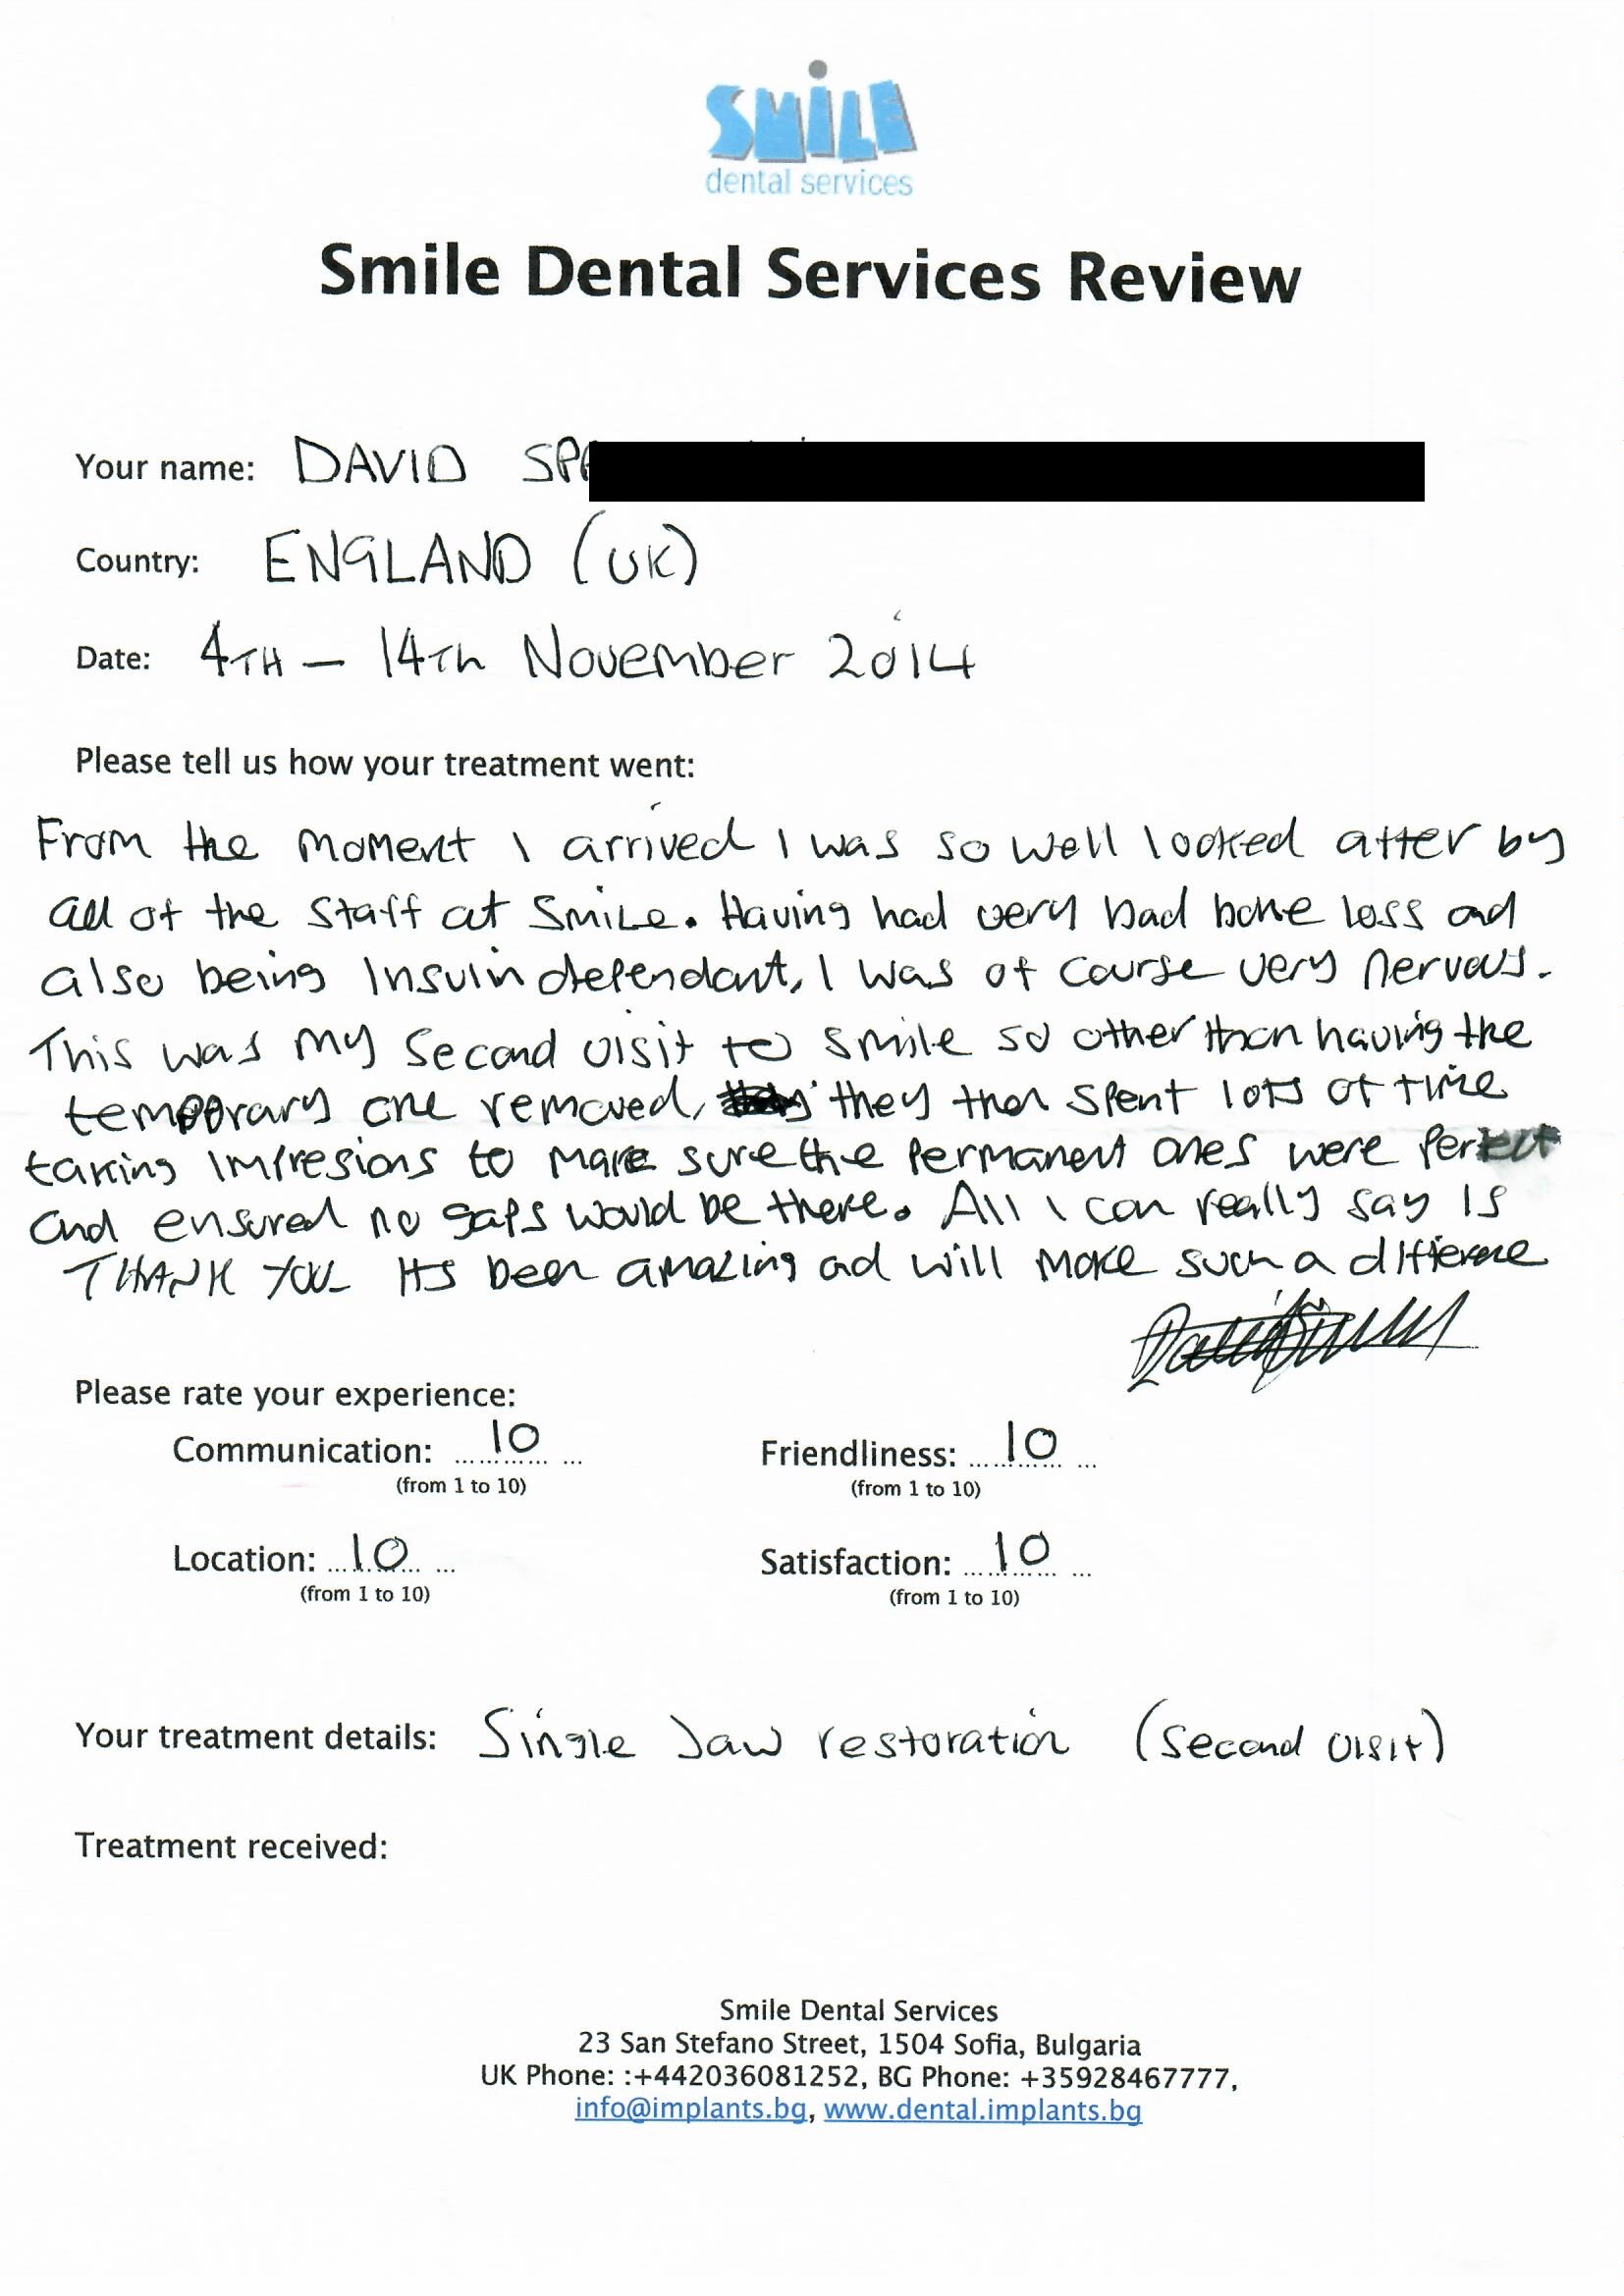 SMiLE
dental services
Smile Dental Services Review
Your name: DAVID SP
Country: ENGLAND (UK)
Date: 4TH – 14Th November 2014
Please tell us how your treatment went:
From the moment I arrived I was so well looked after by
all of the staff at Smile. Having had very bad bone loss and
also being Insulin dependant, I was of course very nervous.
This was my second visit to smile so other than having the
temporary one removed, they then spent lots of time
taking impresions to make sure the permanent ones were perfect
and ensured no gaps would be there. All I can really say is
THANK YOU Its been amazing and will make such a difference
Please rate your experience:
Communication: 10 Friendliness: 10
(from 1 to 10) (from 1 to 10)
Location: 10 Satisfaction: 10
(from 1 to 10) (from 1 to 10)
Your treatment details: Single Jaw restoration (second visit)
Treatment received:
Smile Dental Services
23 San Stefano Street, 1504 Sofia, Bulgaria
UK Phone: :+442036081252, BG Phone: +35928467777,
info@implants.bg, www.dental.implants.bg